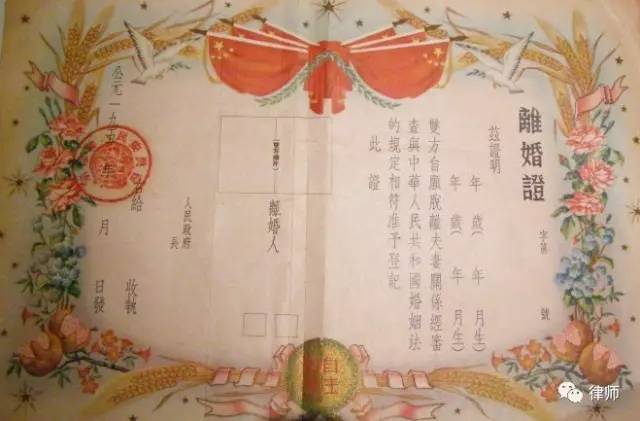 離婚證
字第 號
茲證明
年 歲( 年 月生)
年 歲( 年 月生)
雙方自願脫離夫妻關係經審
查與中華人民共和國婚姻法
的規定相符准予登記
此證
離婚人
人民政府
長
給 收執
公元一九五 年 月 日發
自主
律师